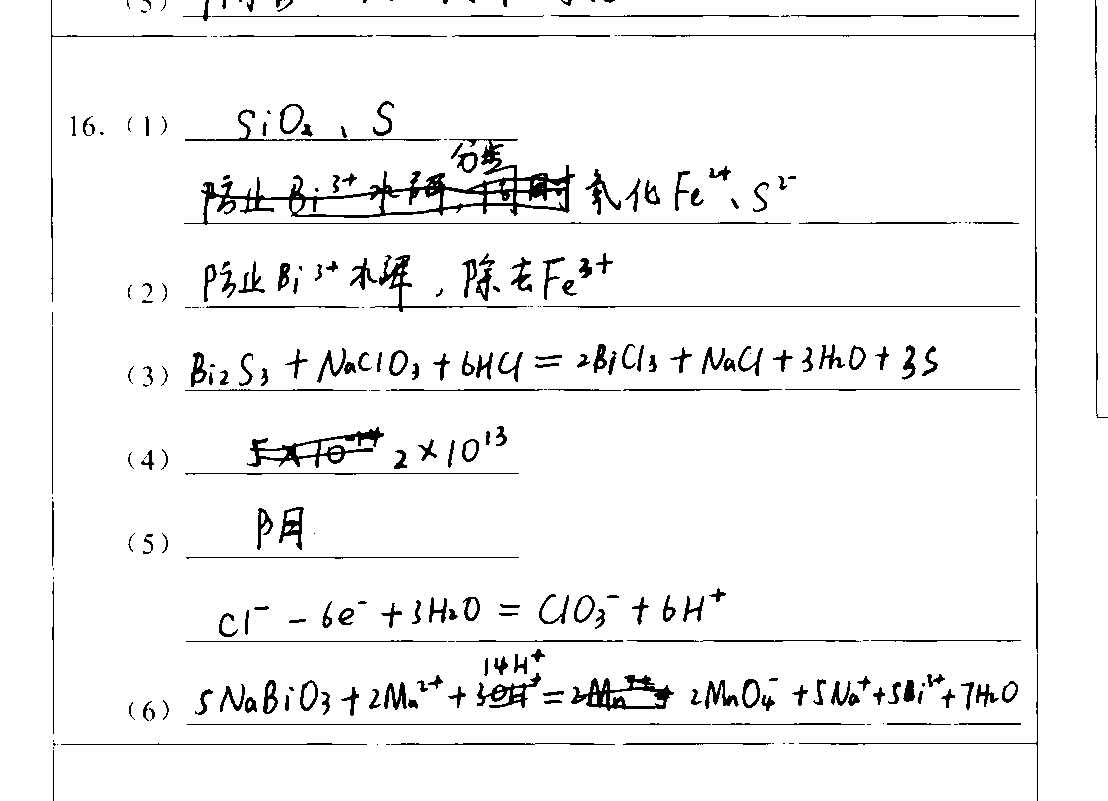 (5)
16. (1) SiO₂、S
分离
防止Bi³⁺水解，同时 氧化Fe²⁺、S²⁻
(2) 防止Bi³⁺水解，除去Fe³⁺
(3) Bi₂S₃ + NaClO₃ + 6HCl = 2BiCl₃ + NaCl + 3H₂O + 3S
(4) 5×10⁻¹⁴ 2×10¹³
(5) 阴
Cl⁻ - 6e⁻ + 3H₂O = ClO₃⁻ + 6H⁺
14H⁺
(6) 5NaBiO₃ + 2Mn²⁺ + = 2MnO₄⁻ + 5Na⁺ + 5Bi³⁺ + 7H₂O